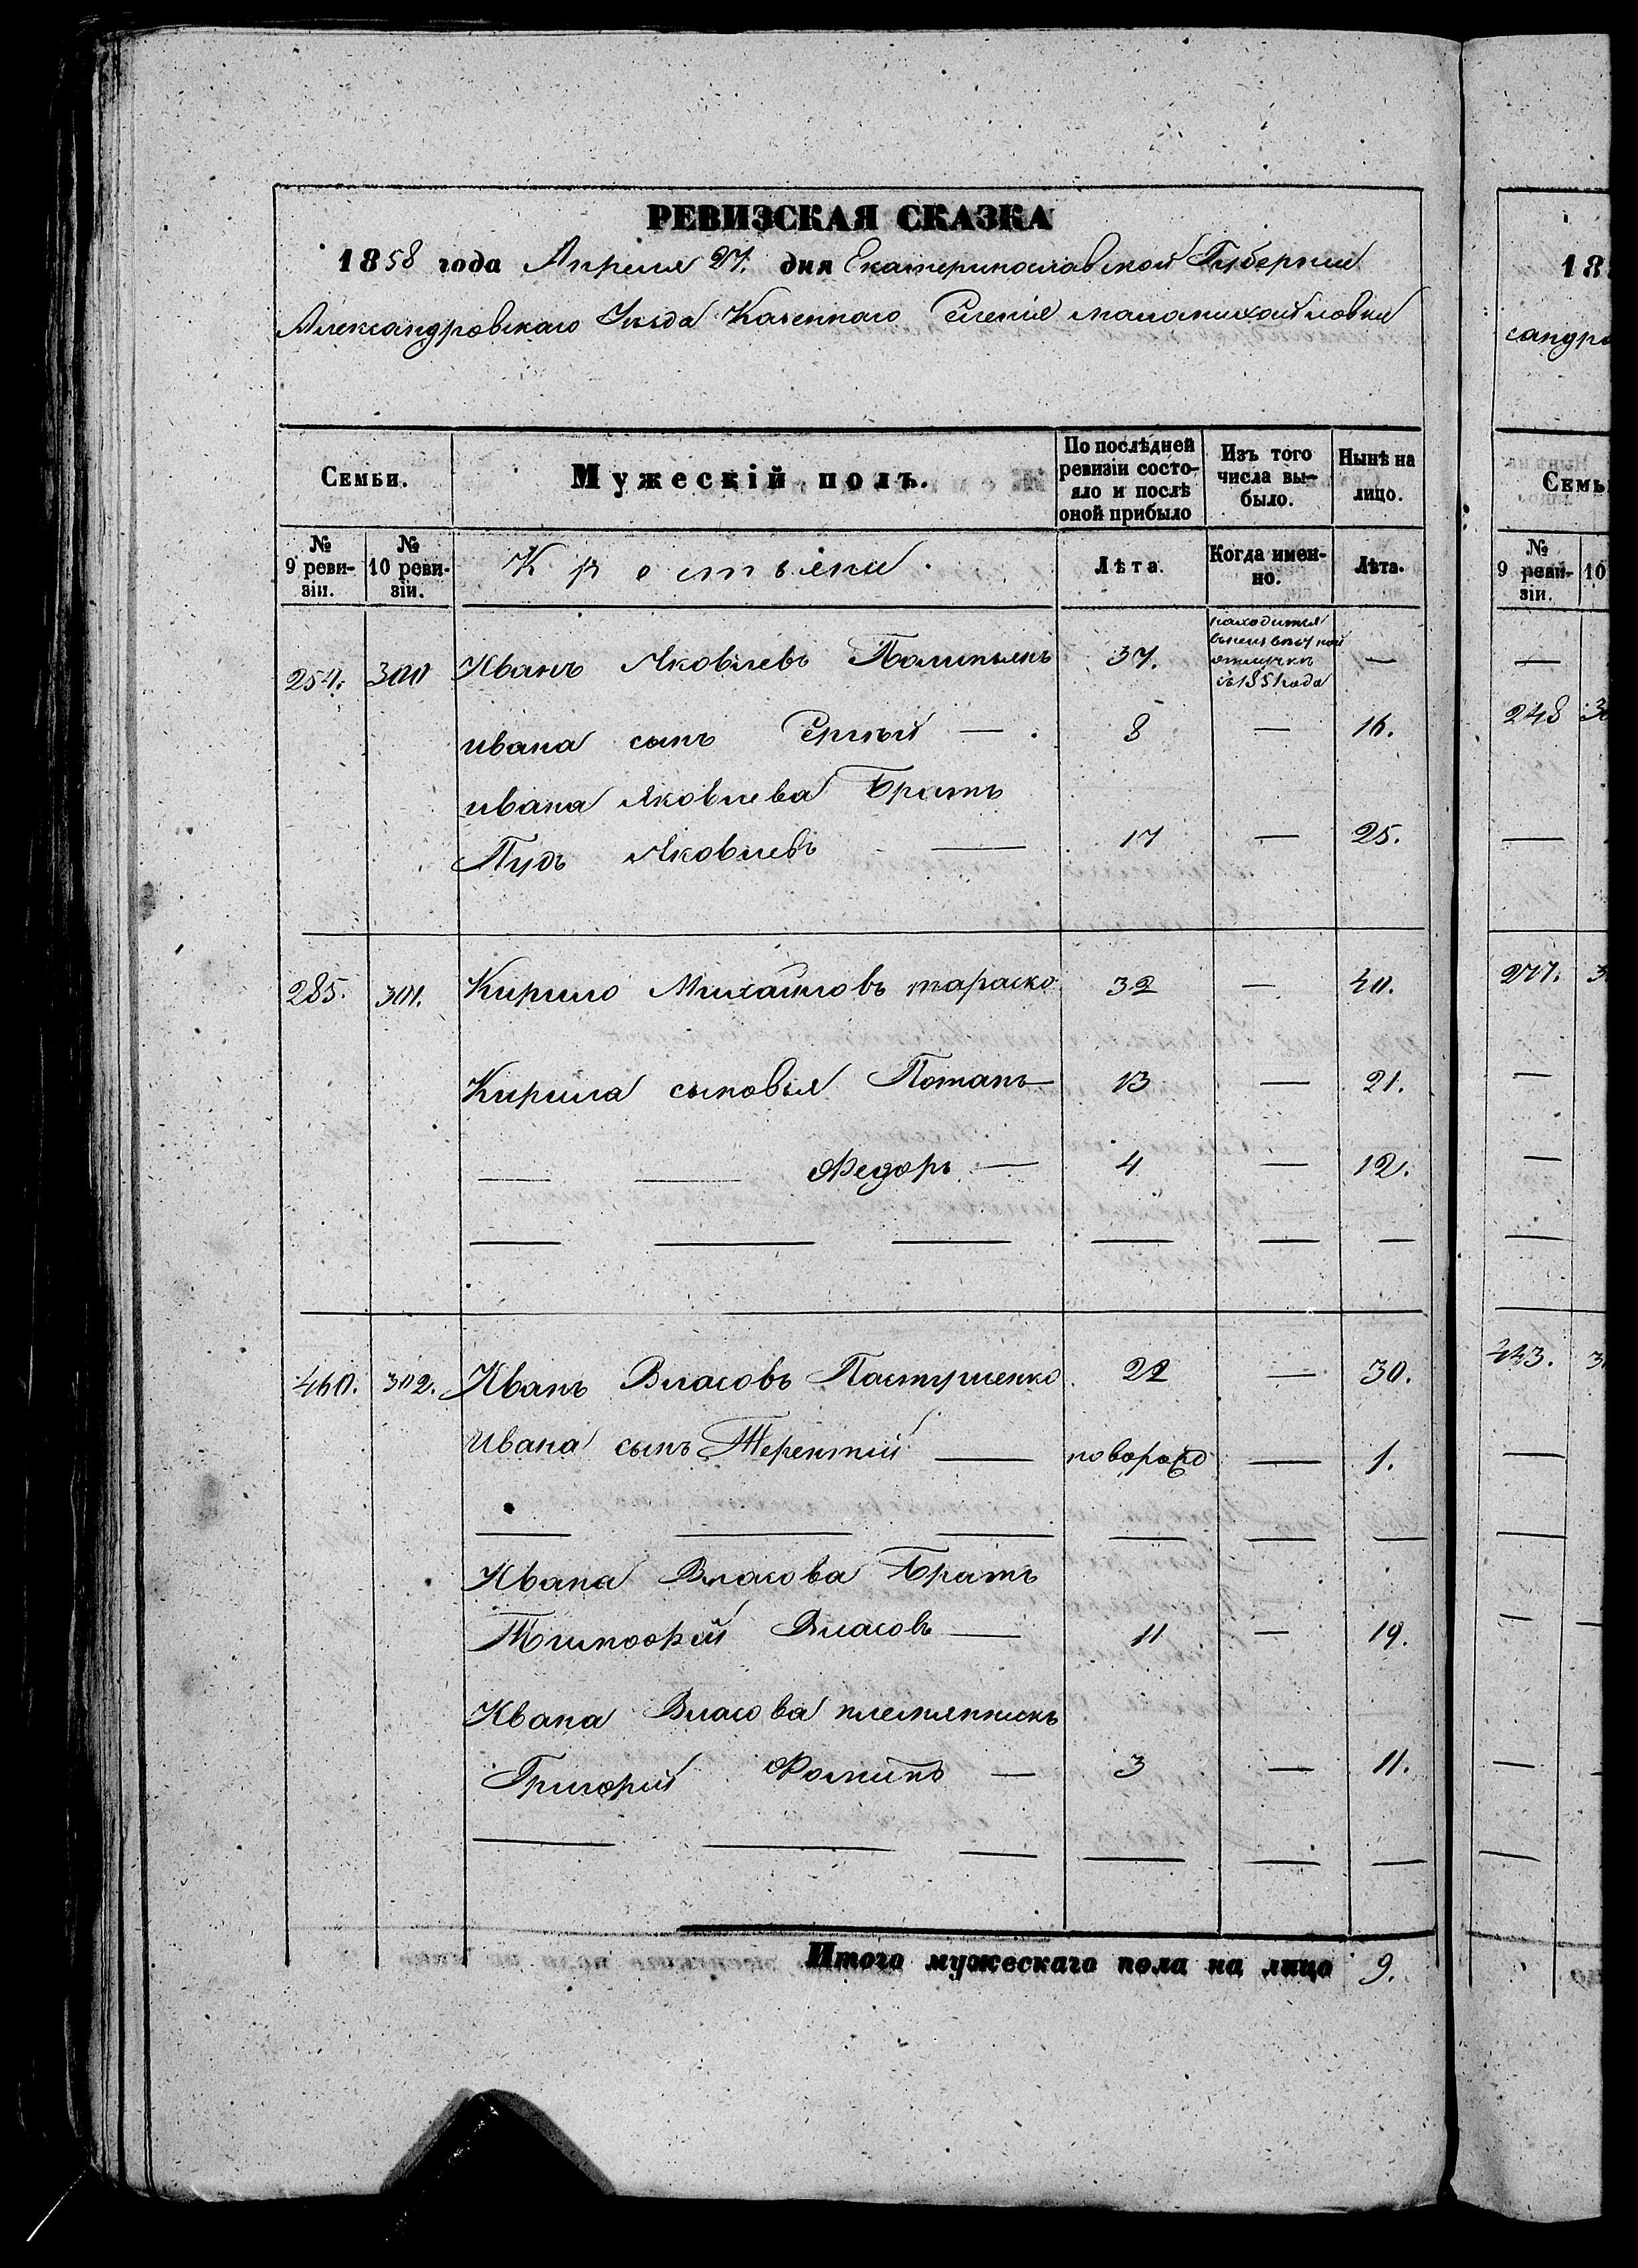 РЕВИЗСКАЯ СКАЗКА
1858 года Апреля 27. дня Екатеринославской Губернии
Александровскаго Уѣзда Казеннаго Селенія маломихайловки
Семьи.
Мужескій полъ.
По послѣдней ревизіи состояло и послѣ оной прибыло
Изъ того числа выбыло.
Нынѣ на лицо.
№ 9 ревизіи.
№ 10 ревизіи.
Крестьяни.
Лѣта.
Когда именно.
Лѣта.
254. 300 Иванъ Яковлевъ 37. находится въ отлучкѣ съ 1851 года —
ивана сынъ Сергѣй — 8 — 16.
ивана Яковлева Братъ
Пудъ Яковлевъ — 17 — 25.
285. 301. Кирило Михайловъ тараско 32 — 40.
Кирила сыновья Потапъ — 13 — 21.
— — Федоръ — 4 — 12.
— — — — — —
460. 302. Иванъ Власовъ Пастушенко 22 — 30.
Ивана сынъ Терентій — новорожд — 1.
— — — — — —
Ивана Власова Братъ
Тимофѣй Власовъ — 11 — 19.
Ивана Власова племянникъ
Григорій Фоминъ — 3 — 11.
— — — — — —
Итого мужескаго пола на лицо 9.
18
сандро
Семь
№ 9 ревизіи.
10
—
248 3
—
277. 3
—
—
—
443. 3
—
—
—
—
—